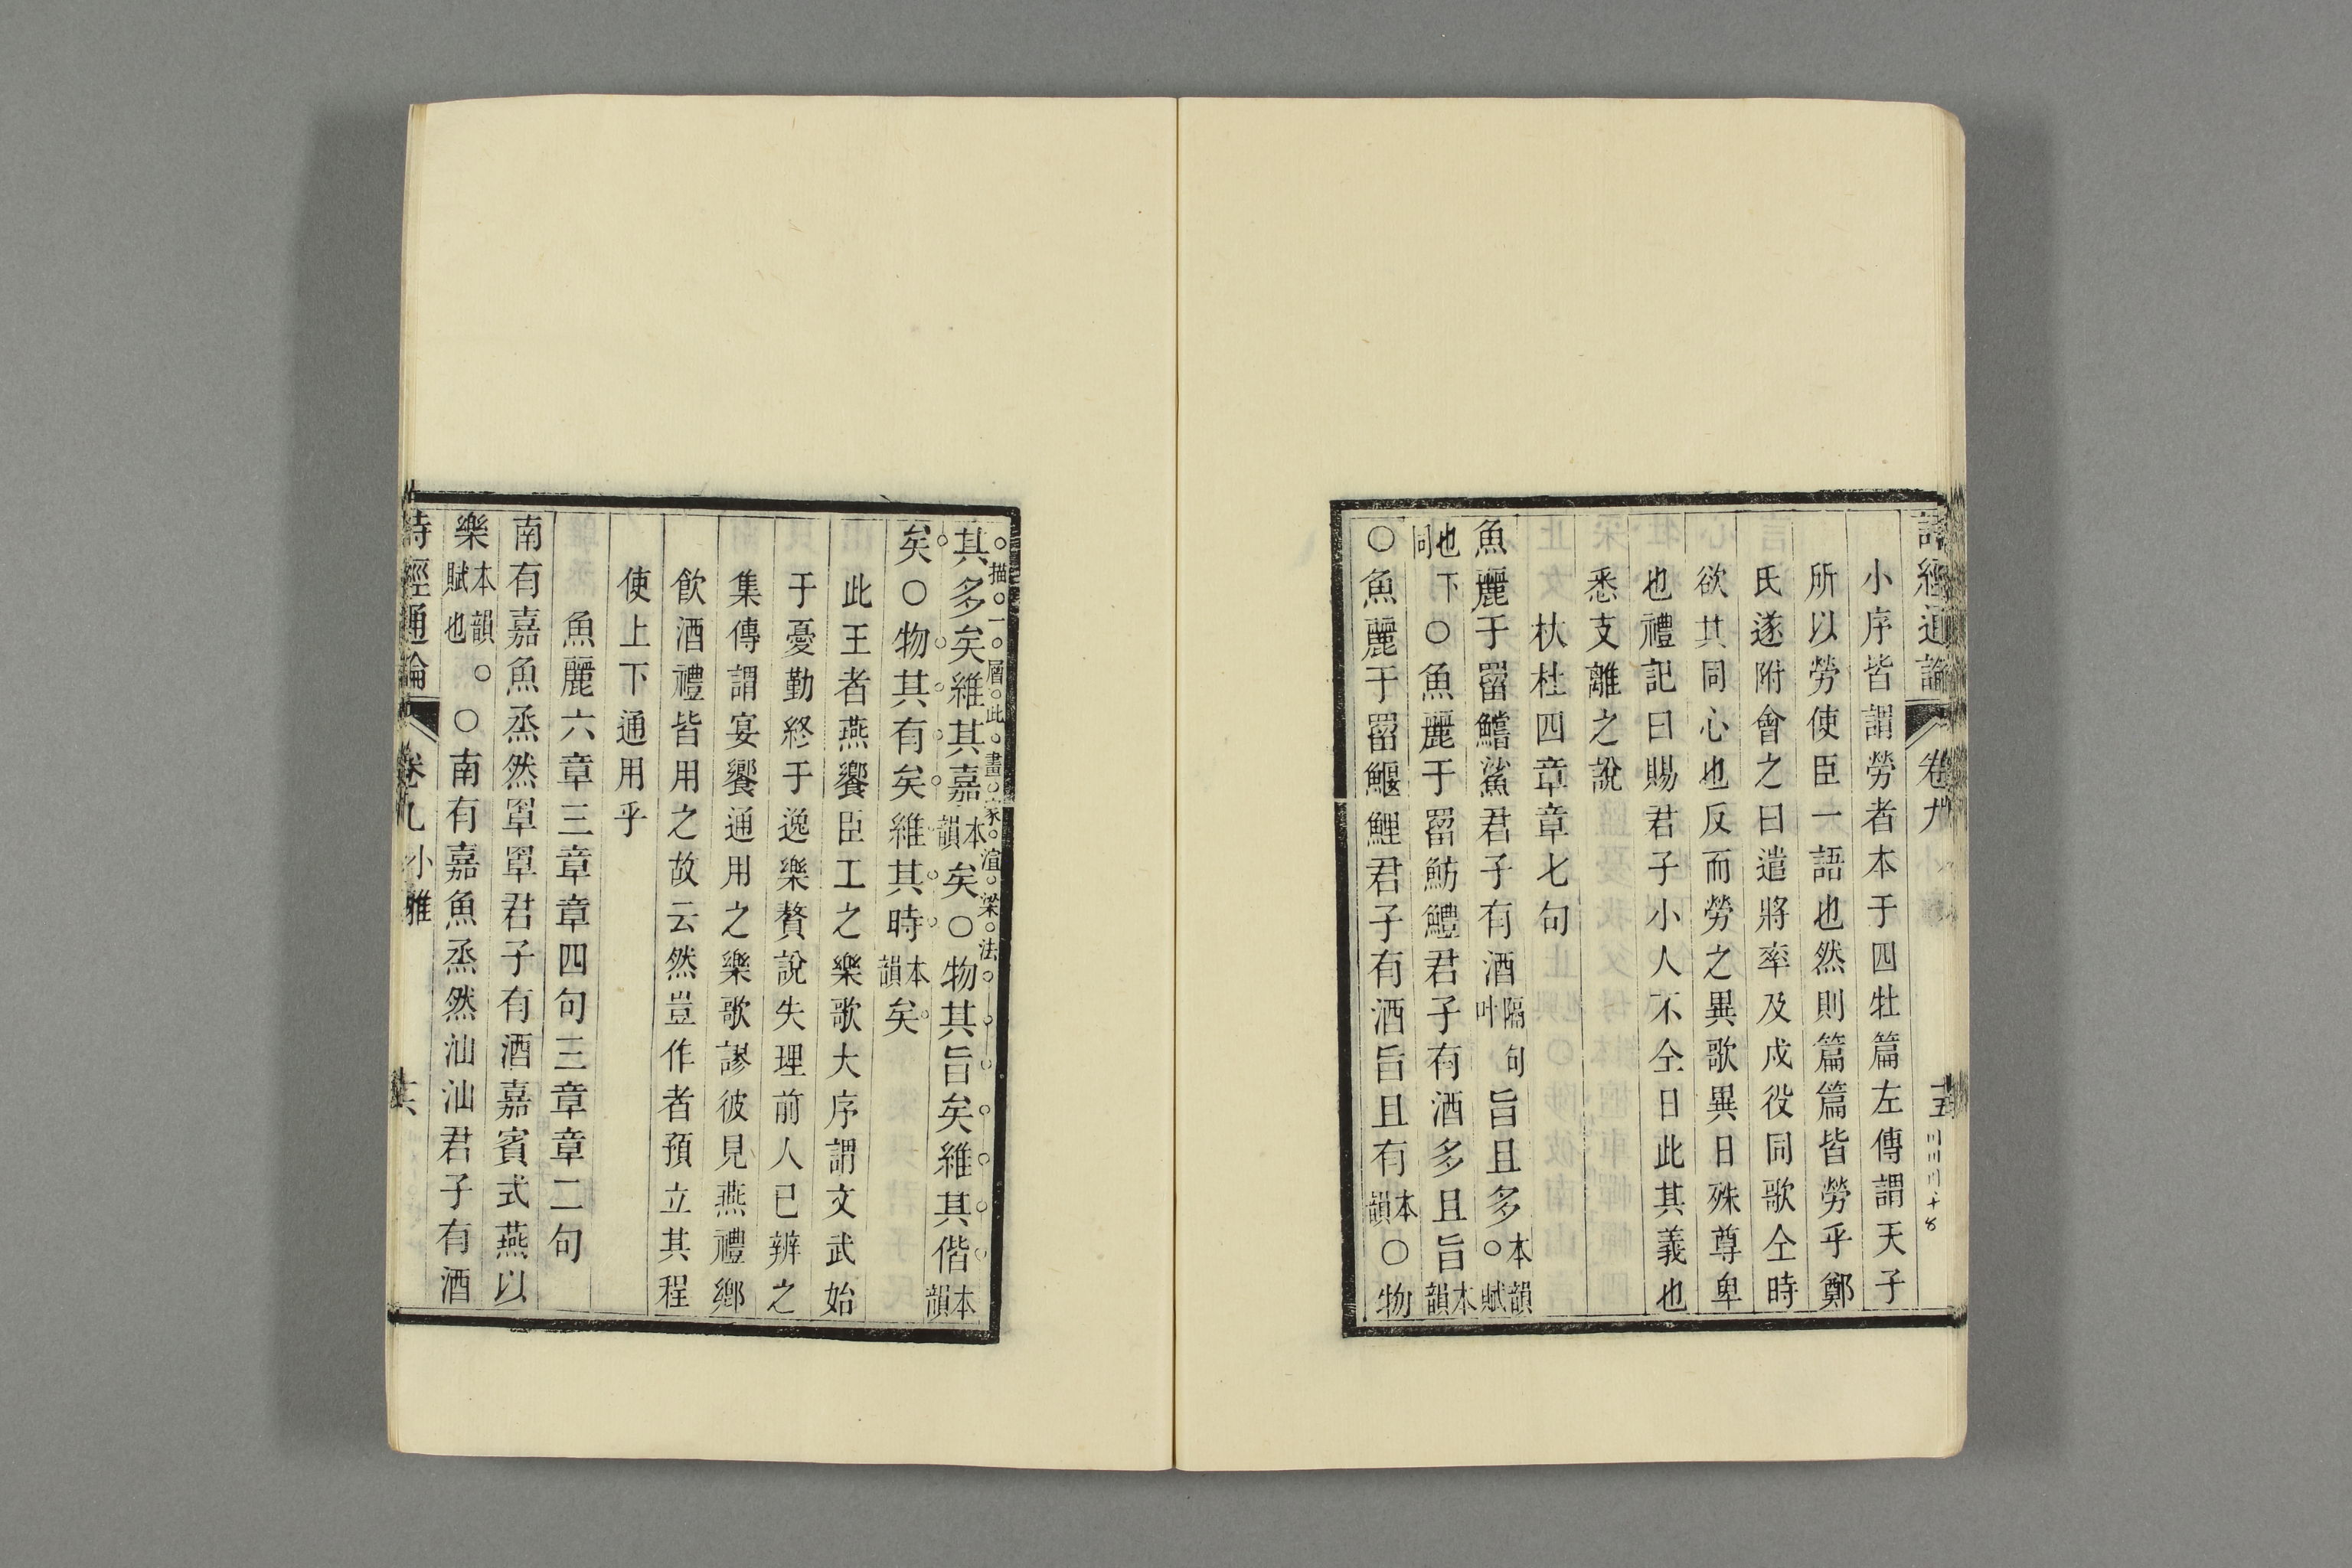 詩經通論 卷九 十五
小序皆謂勞者本于四牡篇左傳謂天子
所以勞使臣一語也然則篇篇皆勞乎鄭
氏遂附會之曰遣將率及戍役同歌仝時
欲其同心也反而勞之異歌異日殊尊卑
也禮記曰賜君子小人不仝日此其義也
悉支離之說
杕杜四章章七句
魚麗于罶鱨鯊君子有酒隔句叶旨且多本韻。賦
也下同○魚麗于罶魴鱧君子有酒多且旨本韻
○魚麗于罶鰋鯉君子有酒旨且有本韻○物
描一層此畫家渲梁法
其多矣維其嘉本韻矣○物其旨矣維其偕本韻
矣○物其有矣維其時本韻矣
此王者燕饗臣工之樂歌大序謂文武始
于憂勤終于逸樂贅說失理前人已辨之
集傳謂宴饗通用之樂歌謬彼見燕禮鄉
飲酒禮皆用之故云然豈作者預立其程
使上下通用乎
魚麗六章三章章四句三章章二句
南有嘉魚烝然罩罩君子有酒嘉賓式燕以
樂本韻。賦也○南有嘉魚烝然汕汕君子有酒
詩經通論 卷九 小雅 十六